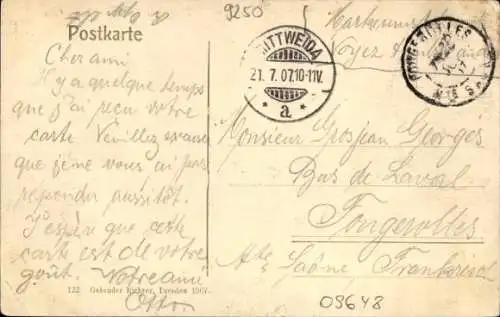 9250
Postkarte
Cher ami
Il y a quelque temps
que j'ai reçu votre
carte Veuillez excuse
que je ne vous ai pas
repondu aussitôt.
J'espère que cette
carte est de votre
goût. Votre ami
Otto
MITTWEIDA
21. 7. 07. 10-11V.
* a *
FOUGEROLLES
Monsieur Grosjean Georges
Bas de Laval
Fougerolles
Hte Saône Frankreich
122 Gebruder Richter, Dresden 1907.
09648